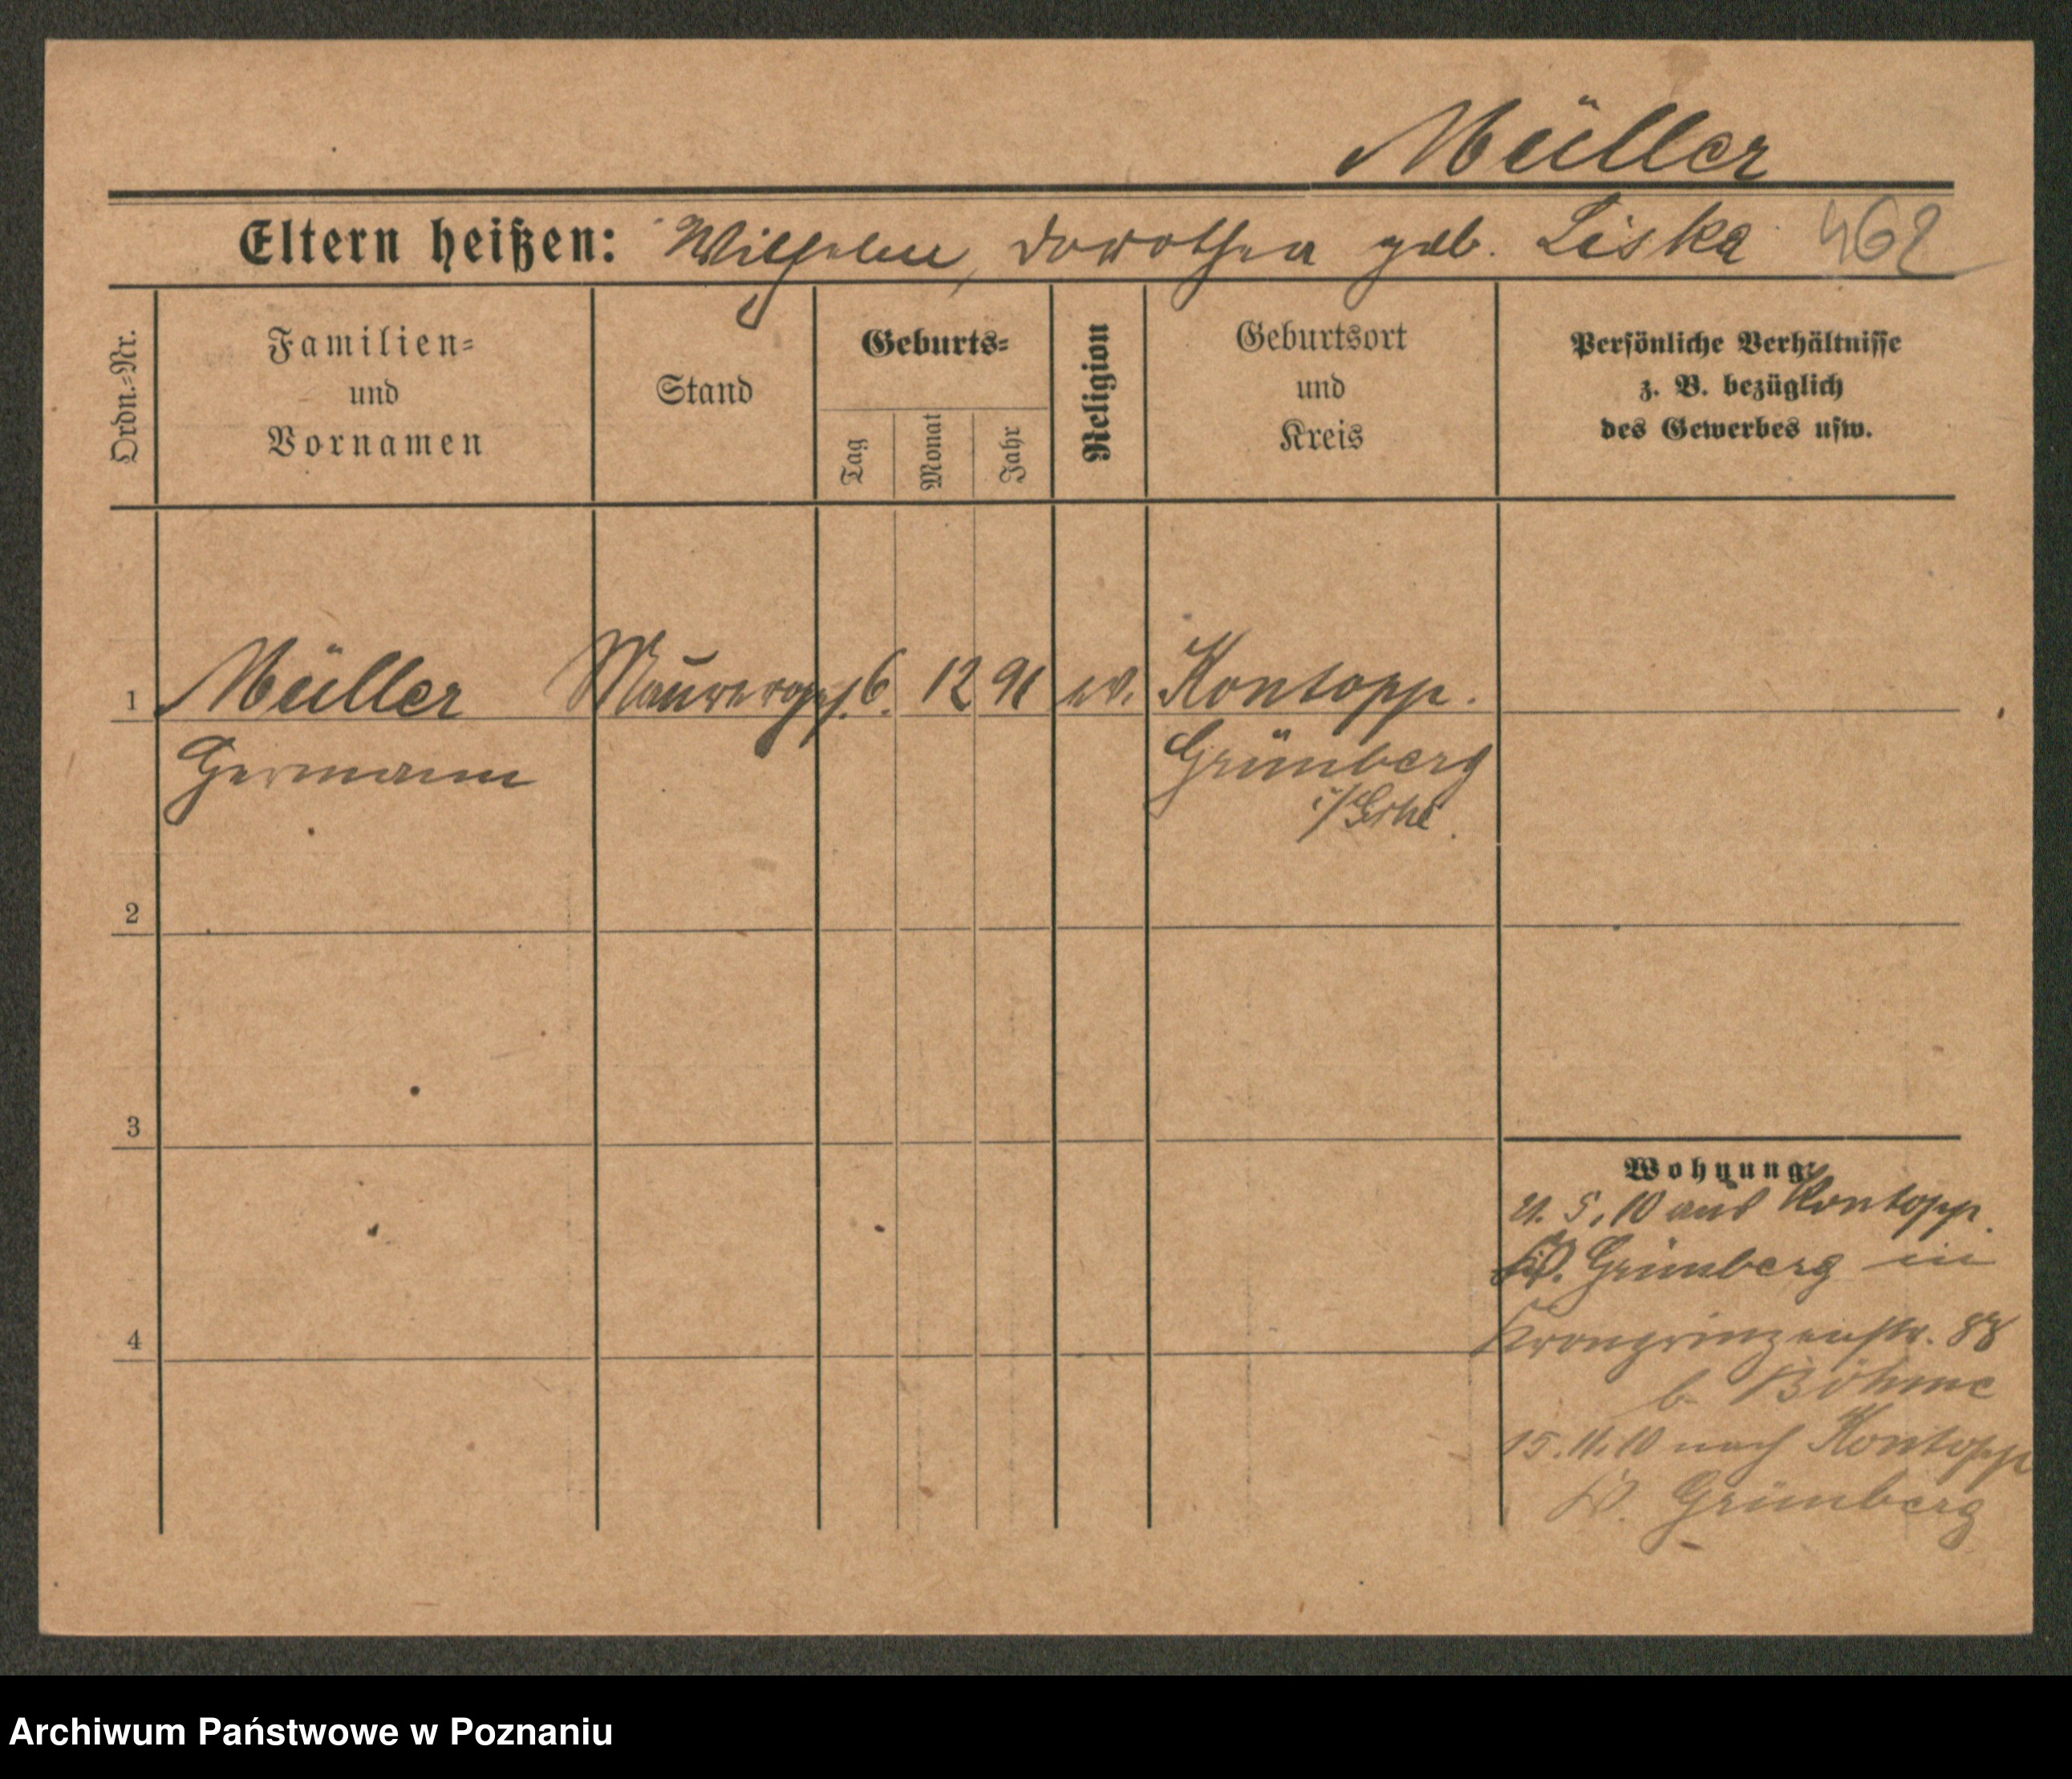 Müller
Eltern heißen: Wilhelm, Dorothea geb. Liska 462
Ordn.=Nr.
Familien=
und
Vornamen
Stand
Geburts=
Tag
Monat
Jahr
Religion
Geburtsort
und
Kreis
Persönliche Verhältnisse
z. B. bezüglich
des Gewerbes usw.
1 Müller Maurerges. 6. 12 91 ev. Kontopp.
Hermann Grünberg
i/Schl.
2
3
4
Wohnung:
21. 5. 10 aus Kontopp.
Grünberg in
Kronprinzenstr. 88
b. Böhme
15. 11. 10 nach Kontopp
Grünberg
Archiwum Państwowe w Poznaniu